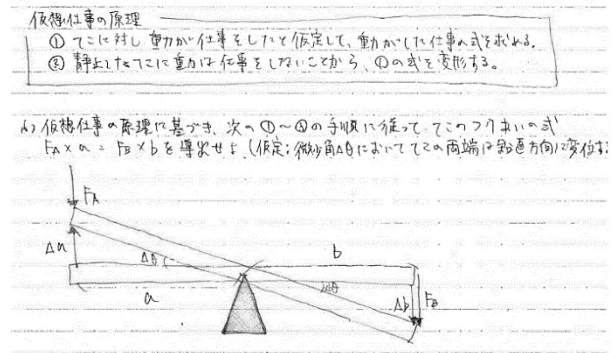 仮想仕事の原理
① てこに対し重力が仕事をしたと仮定して、重力がした仕事の式を求める。
② 静止したてこに重力は仕事をしないことから、①の式を変形する。
仮想仕事の原理に基づき、次の①〜②の手順に従って、てこのつりあいの式
FA × a = FB × b を導出せよ。(仮定：微小角Δθにおいててこの両端は鉛直方向に変位する
FA
Δa
Δθ
b
a
Δθ
Δb
FB